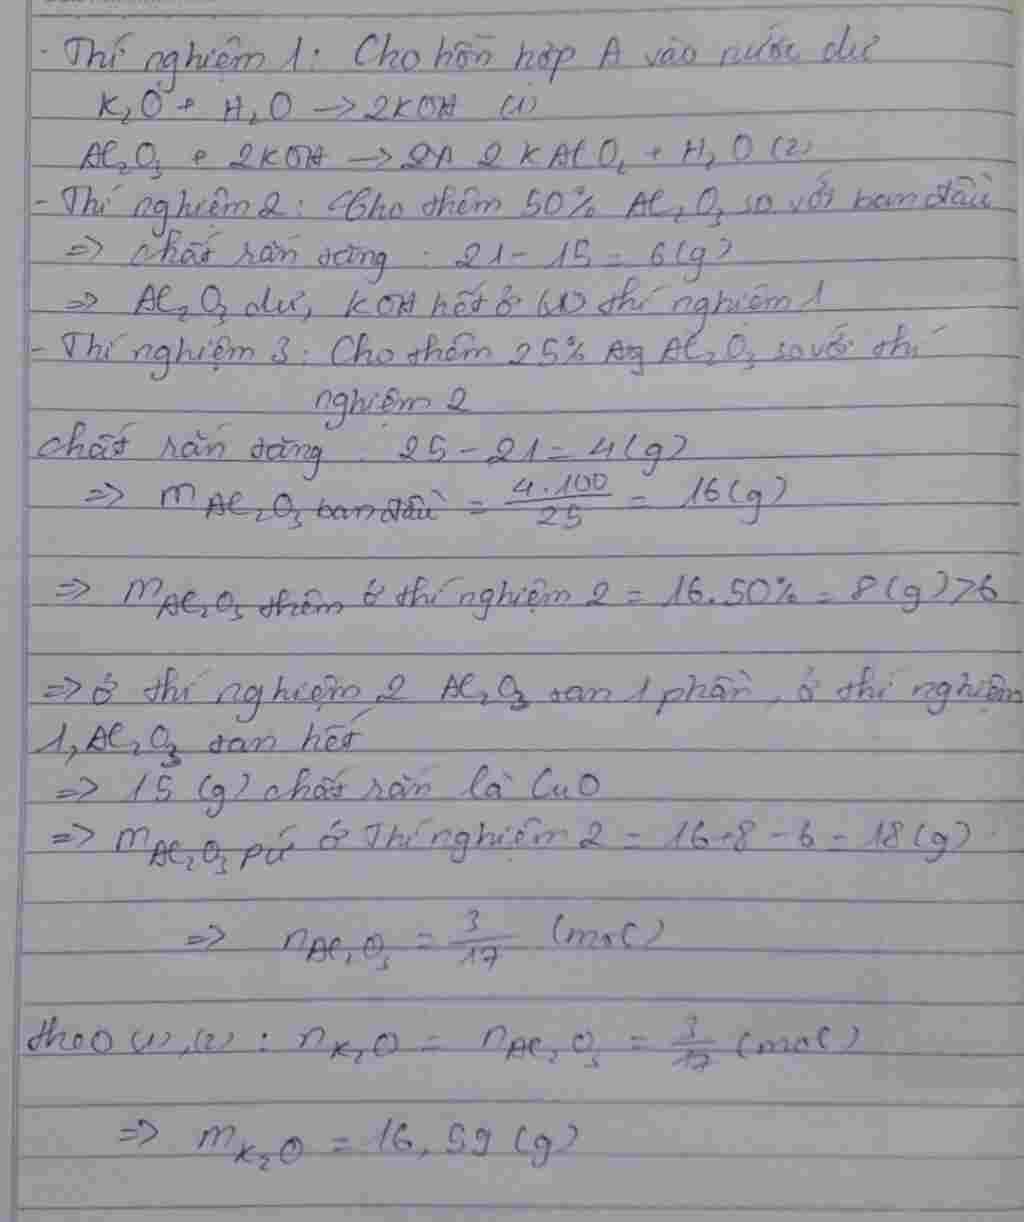 - Thí nghiệm 1: Cho hỗn hợp A vào nước dư
K₂O + H₂O → 2KOH (1)
Al₂O₃ + 2KOH → 2 KAlO₂ + H₂O (2)
- Thí nghiệm 2: Cho thêm 50% Al₂O₃ so với ban đầu
=> chất rắn tăng : 21 - 15 = 6 (g)
=> Al₂O₃ dư, KOH hết ở (1) thí nghiệm 1
- Thí nghiệm 3: Cho thêm 25% Al₂O₃ so với thí
nghiệm 2
chất rắn tăng : 25 - 21 = 4 (g)
=> m Al₂O₃ ban đầu = 4.100/25 = 16 (g)
=> m Al₂O₃ thêm ở thí nghiệm 2 = 16.50% = 8 (g) > 6
=> ở thí nghiệm 2 Al₂O₃ tan 1 phần, ở thí nghiệm
1, Al₂O₃ tan hết
=> 15 (g) chất rắn là CuO
=> m Al₂O₃ pứ ở Thí nghiệm 2 = 16 + 8 - 6 = 18 (g)
=> n Al₂O₃ = 3/17 (mol)
theo (1), (2) : n K₂O = n Al₂O₃ = 3/17 (mol)
=> m K₂O = 16,59 (g)